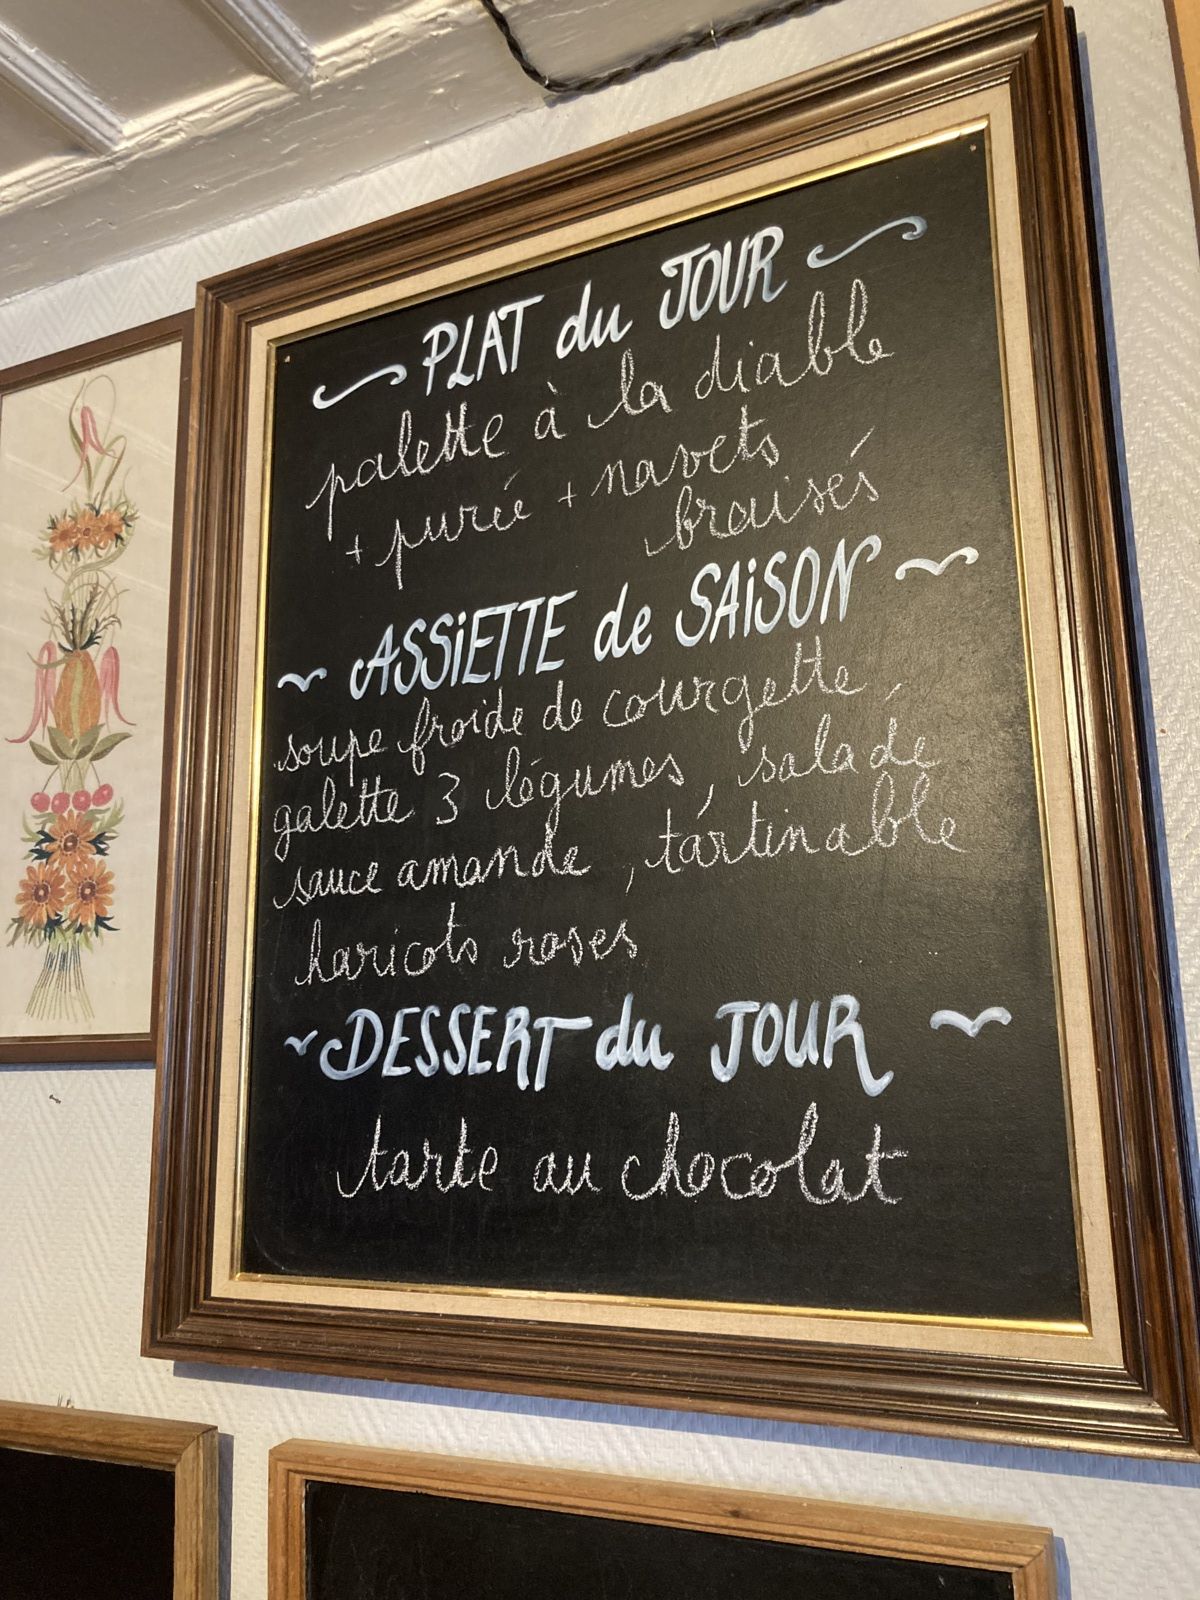 PLAT du JOUR
palette à la diable
+ purée + navets
braisés
ASSiETTE de SAiSON
soupe froide de courgette,
galette 3 légumes, salade
sauce amande, tartinable
haricots roses
DESSERT du JOUR
tarte au chocolat